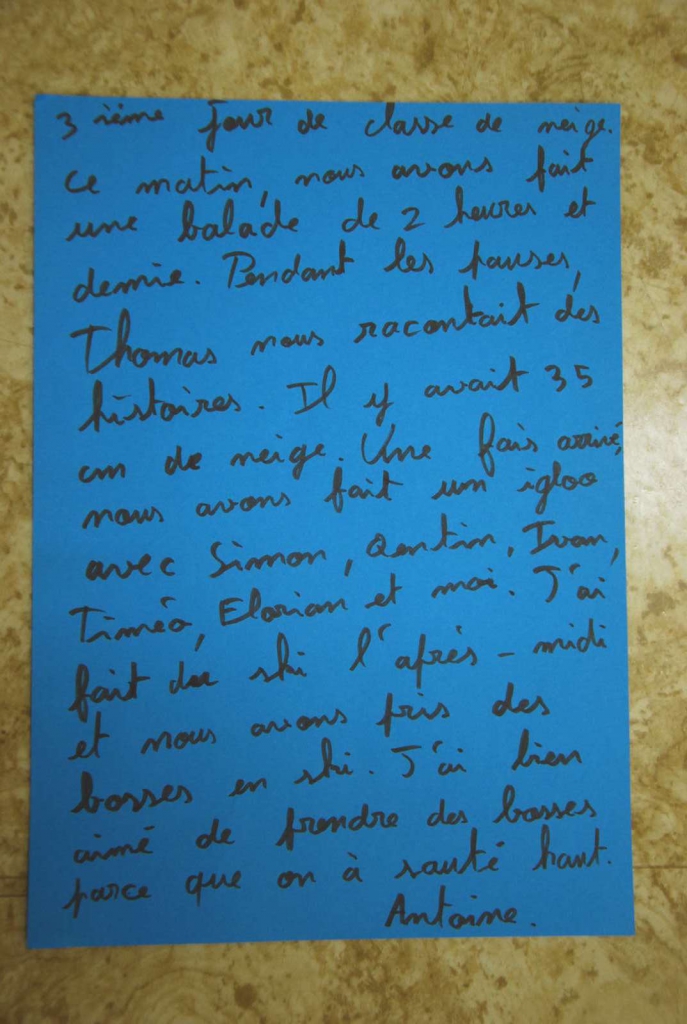 3 ième jour de classe de neige.
Ce matin, nous avons fait
une balade de 2 heures et
demie. Pendant les pauses,
Thomas nous racontait des
histoires. Il y avait 35
cm de neige. Une fois arrivé,
nous avons fait un igloo
avec Simon, Qentin, Ivan,
Timéo, Elorian et moi. J'ai
fait du ski l'après-midi
et nous avons pris des
bosses en ski. J'ai bien
aimé de prendre des bosses
parce que on à sauté haut.
Antoine.